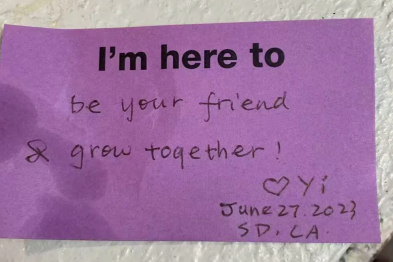 I'm here to
be your friend
& grow together!
♡ Yi
June 27. 2023
SD. LA.